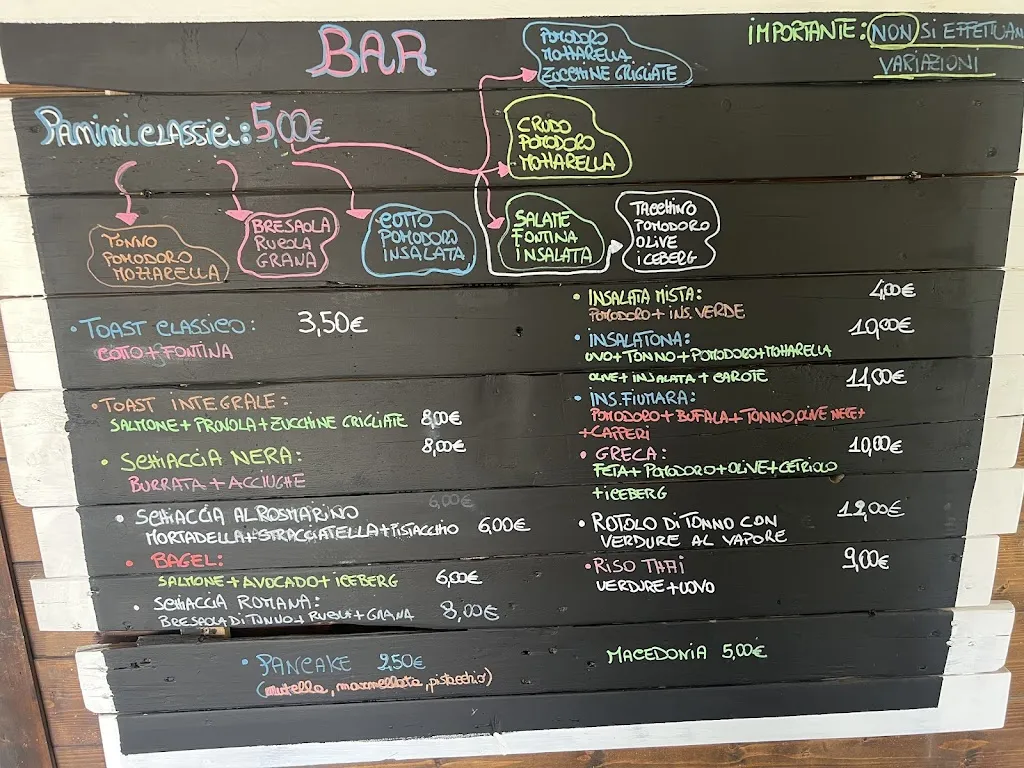 BAR
IMPORTANTE: NON SI EFFETTUAN
VARIAZIONI
POMODORO
MOZZARELLA
ZUCCHINE GRIGLIATE
Panini classici: 5,00€
CRUDO
POMODORO
MOZZARELLA
TONNO
POMODORO
MOZZARELLA
BRESAOLA
RUCOLA
GRANA
COTTO
POMODORO
INSALATA
SALAME
FONTINA
INSALATA
TACCHINO
POMODORO
OLIVE
ICEBERG
• TOAST CLASSICO: 3,50€
COTTO + FONTINA
• TOAST INTEGRALE:
SALMONE + PROVOLA + ZUCCHINE GRIGLIATE 8,00€
• SCHIACCIA NERA: 8,00€
BURRATA + ACCIUGHE
6,00€
• SCHIACCIA AL ROSMARINO
MORTADELLA + STRACCIATELLA + PISTACCHIO 6,00€
• BAGEL:
SALMONE + AVOCADO + ICEBERG 6,00€
• SCHIACCIA ROMANA:
BRESAOLA DI TONNO + RUCOLA + GRANA 8,00€
• INSALATA MISTA: 4,00€
POMODORO + INS. VERDE
• INSALATONA: 10,00€
UOVO + TONNO + POMODORO + MOZZARELLA
OLIVE + INSALATA + CAROTE 11,00€
• INS. FIUMARA:
POMODORO + BUFALA + TONNO, OLIVE NERE +
+ CAPPERI
• GRECA: 10,00€
FETA + POMODORO + OLIVE + CETRIOLO
+ ICEBERG
• ROTOLO DI TONNO CON 12,00€
VERDURE AL VAPORE
• RISO THAI 9,00€
VERDURE + UOVO
• PANCAKE 2,50€
(nutella, marmellata, pistacchio)
MACEDONIA 5,00€